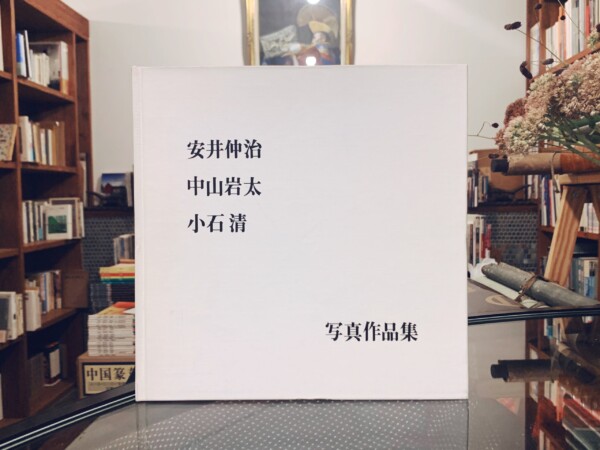 安井仲治
中山岩太
小石 清
写真作品集
中国篆